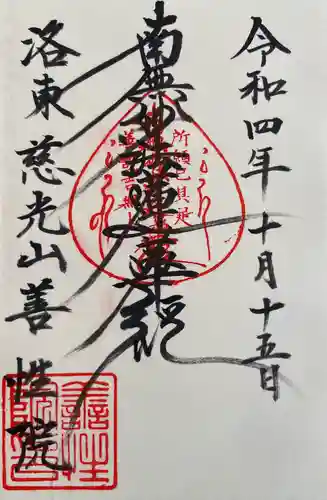 令和四年十月十五日
南無妙法蓮華経
洛東 慈光山善性院